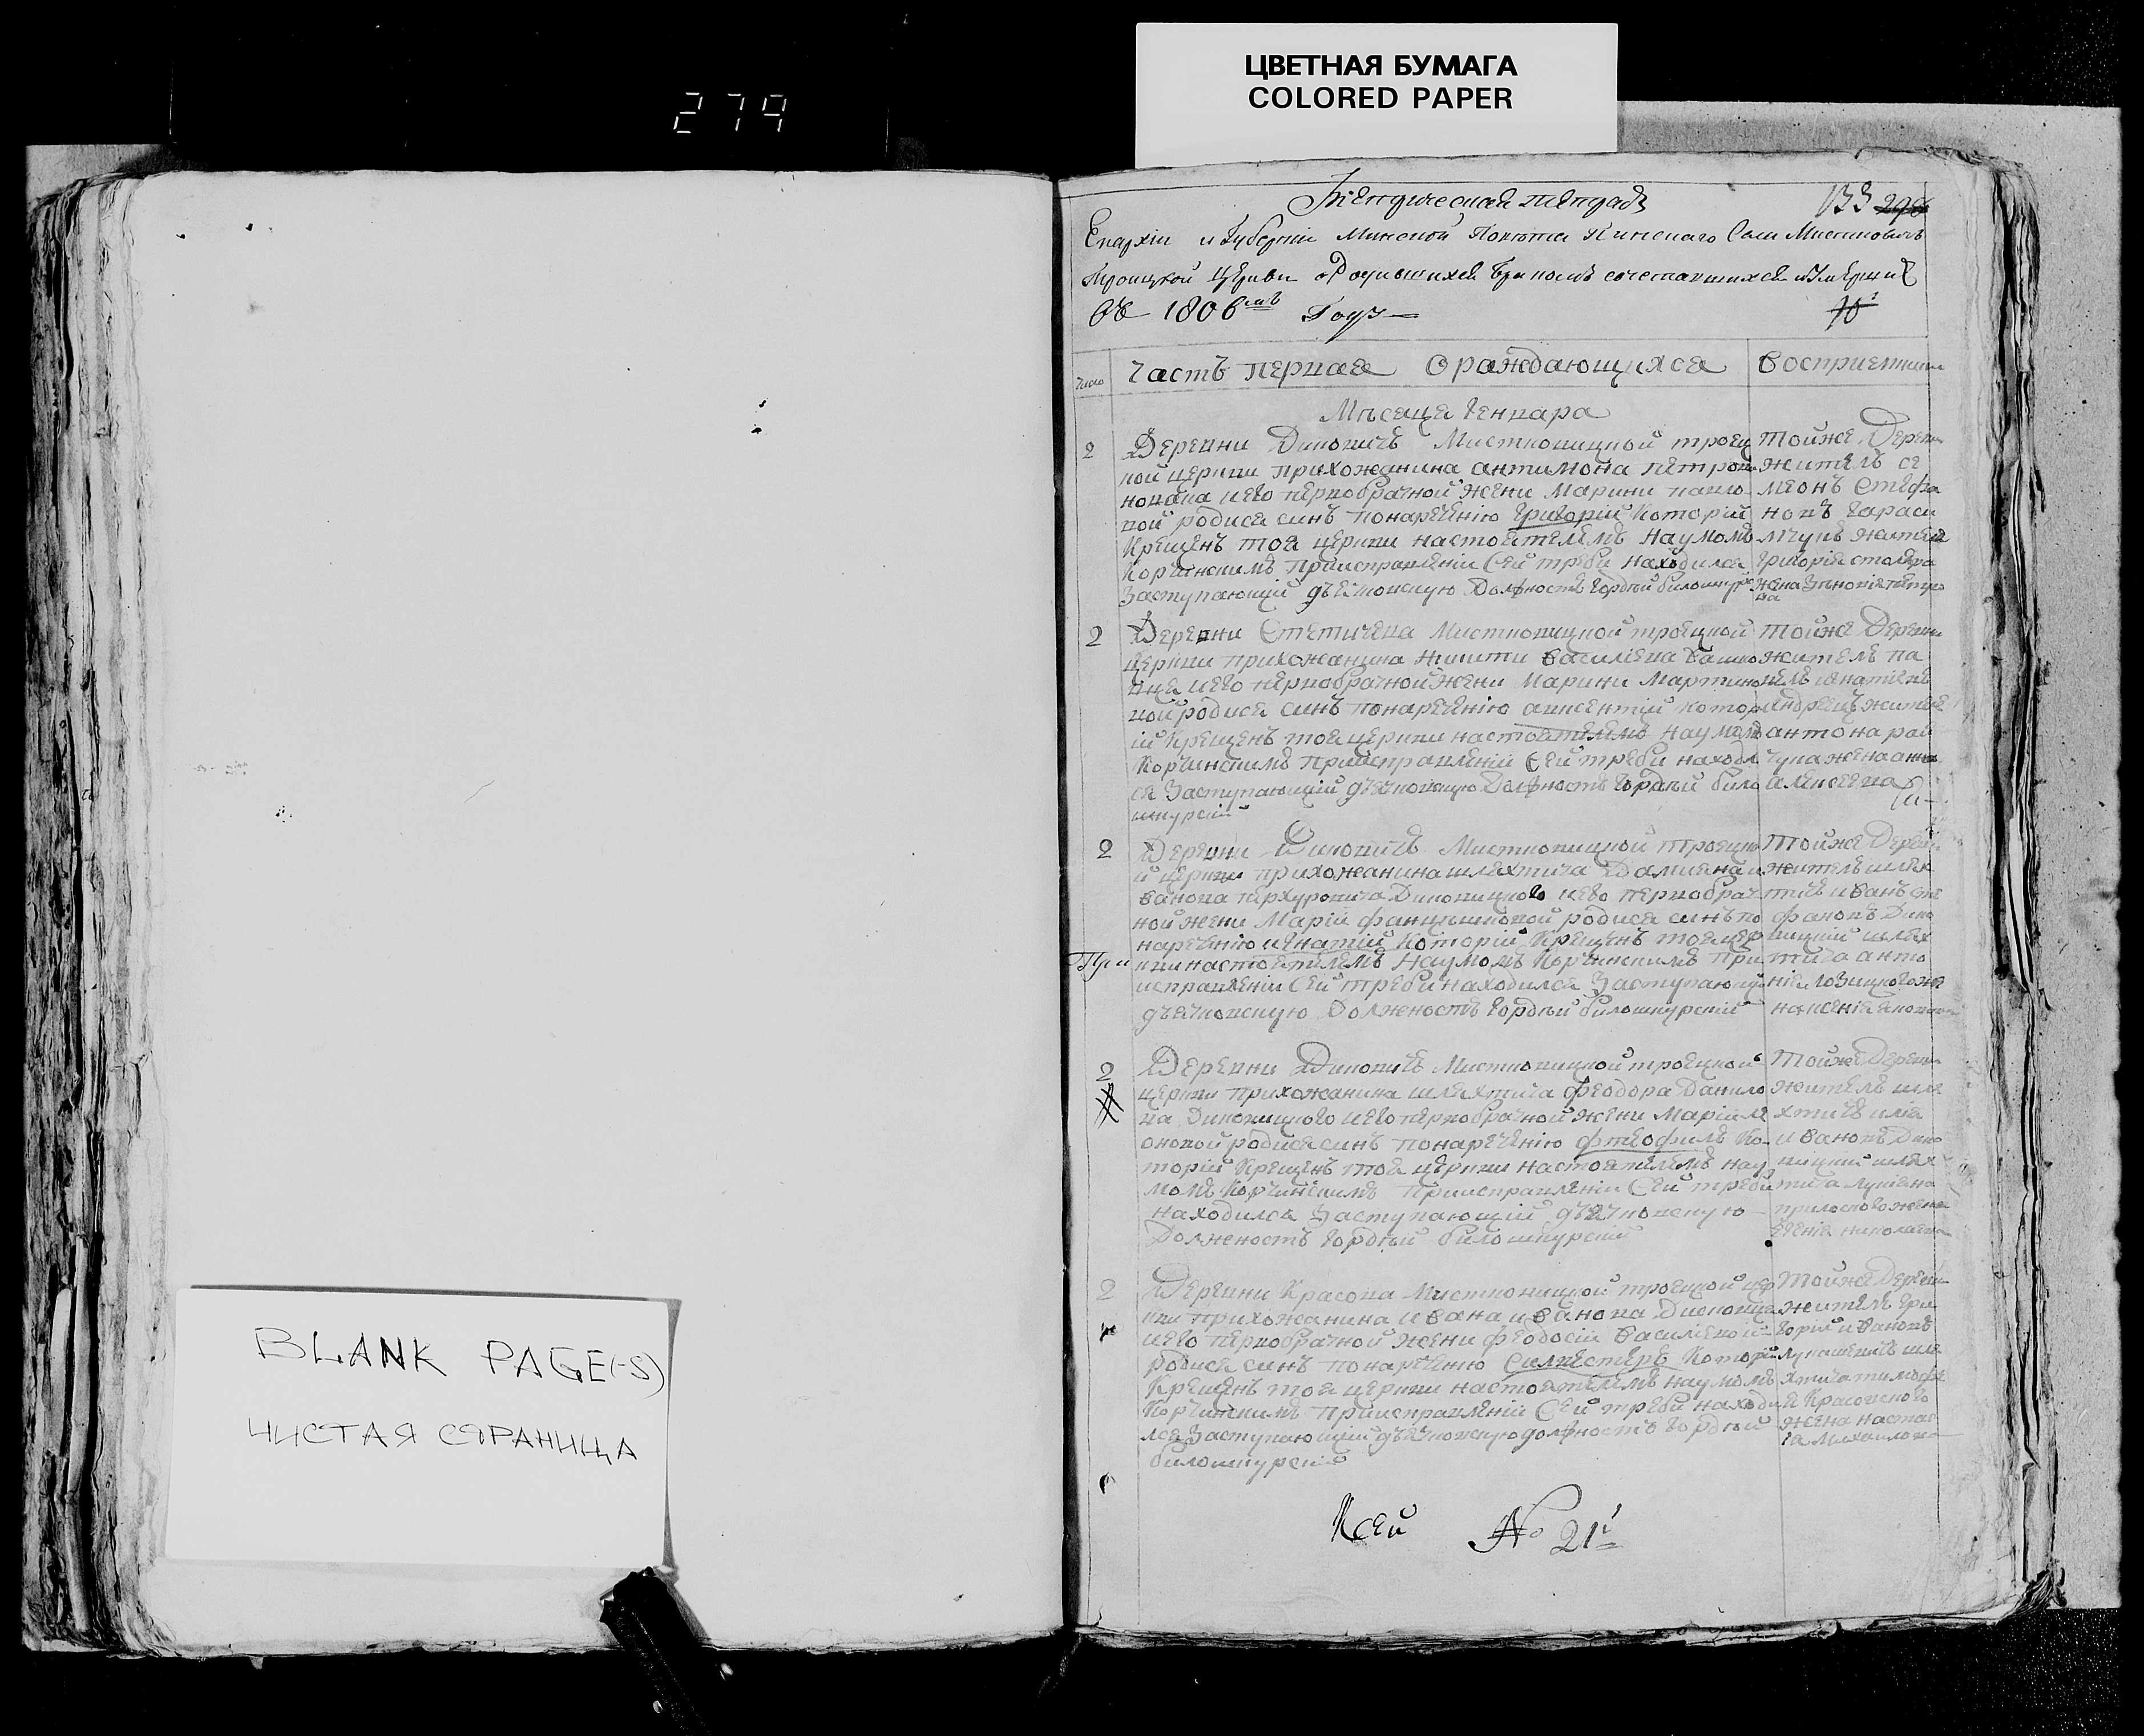 ЦВЕТНАЯ БУМАГА
COLORED PAPER
279
133
Епархіи и Губерніи Минской Повѣта Пинскаго Села Мистковичъ
Троицкой Церкви о Родившихся Бракомъ сочетавшихся и Умерших
въ 1806мъ Году
число
часть первая о раждающихся
восприемники
Мѣсяца Генвара
2
Деревни Диковичъ Мистковицкой троец
кой церкви прихожанина антимона петрова
и его первобрачной жени Марини павло
вой родися синъ понаречѣнію Григорій Которій
Крещенъ тоя церкви настоятелемъ Наумомъ
Корчинскимъ приисправленіи Сей треби находился
Заступающій дьячковскую Должность Гордѣй билошкурскій
Тойже Деревни
житель се
меонъ Стефа
новъ Гараси
мчукъ жителя
Григорія столяра
жена Зѣновія петро
ва
2
Деревни Мистковицкой троецкой
церкви прихожанина Василіева
и его первобрачной жени Марини Мартино
вой родися синъ понаречѣнію авксентій котор
ій Крещенъ тоя церкви настоятелемъ Наумомъ
Корчинскимъ приисправленіи Сей треби находил
ся Заступающій дьячковскую Должность Гордѣй било
шкурскій
Тойже Деревни
житель па
велъ Игнатіевъ
жителя
антона рай
чука жена анна
алексеева
2
Деревни Диковичъ Мистковицкой троецко
й церкви прихожанина шляхтича Дамияна и
ванова Диковицкого и его первобрач
ной жени Маріи францишковой родися синъ по
наречѣнію игнатій Которій Крещенъ тоя цер
кви настоятелемъ Наумомъ Корчинскимъ При
исправленіи Сей треби находился Заступающій
дьячковскую Должность Гордѣй билошкурскій
Тойже Деревни
житель шлях
тичъ иванъ сте
фановъ Дико
вицкій шлях
тича анто
на ксенія яковлева
2
Деревни Диковичъ Мистковицкой троецкой
церкви прихожанина шляхтича Феодора Данило
ва Диковицкого и его первобрачной жени Маріи ле
оновой родися синъ понаречѣнію фтеофилъ Ко
торій Крещенъ тоя церкви настоятелемъ нау
момъ Корчинскимъ Приисправленіи Сей треби
находился Заступающій дьячковскую
Должность Гордѣй билошкурскій
Тойже Деревни
житель шля
хтичъ илія
ивановъ Дико
вицкій шлях
тича лукіяна
Евгенія николаева
2
Деревни Красова Мистковицкой троецкой цер
кви прихожанина ивана иванова
и его первобрачной жени феодосіи Василіевой
родися синъ понаречѣнію Силвестеръ Которій
Крещенъ тоя церкви настоятелемъ наумомъ
Корчинскимъ Приисправленіи Сей треби находи
лся Заступающій дьячковскую должность Гордѣй
билошкурскій
Тойже Деревни
житель Гри
горій ивановъ
Лукашевичъ шля
хтича тимофе
я Красовского
жена настас
ія Михаилова
№ 21
BLANK PAGE(-S)
ЧИСТАЯ СТРАНИЦА